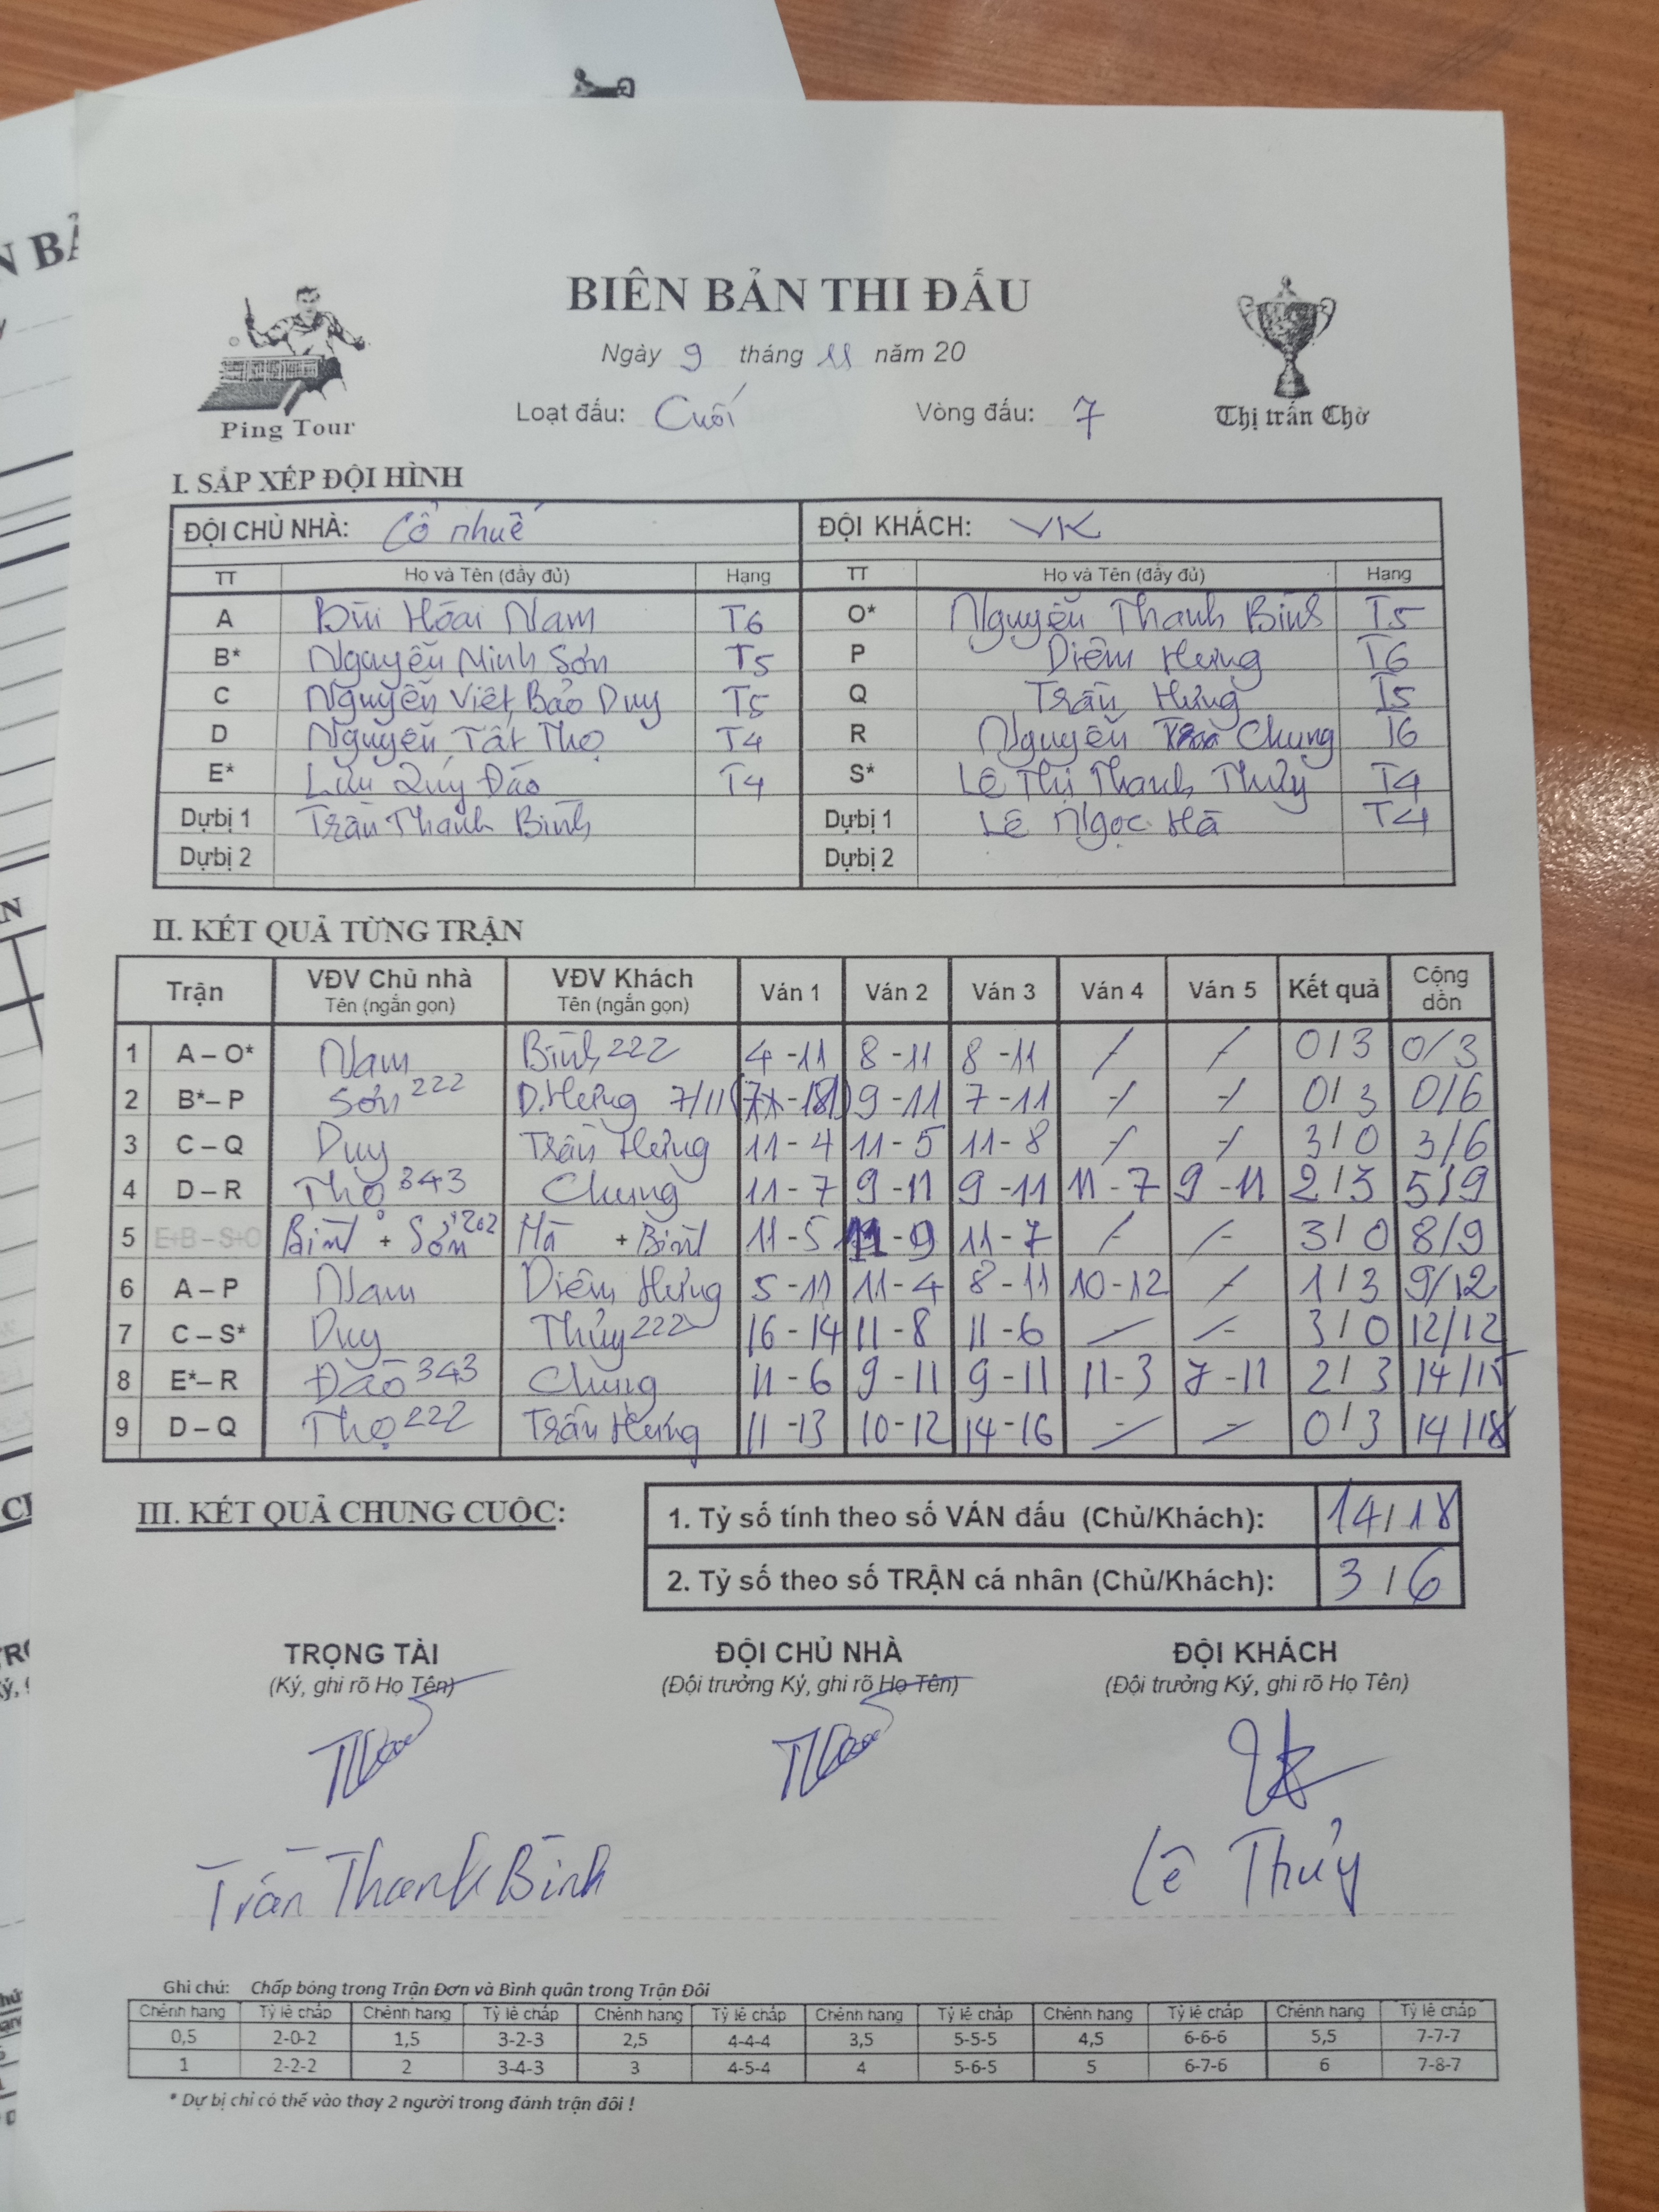 BIÊN BẢN THI ĐẤU
Ngày 9 tháng 11 năm 20
Loạt đấu: Cuối Vòng đấu: 7
Ping Tour
Thị trấn Chờ
I. SẮP XẾP ĐỘI HÌNH
ĐỘI CHỦ NHÀ: Cổ nhuế ĐỘI KHÁCH: VK
TT Họ và Tên (đầy đủ) Hạng TT Họ và Tên (đầy đủ) Hạng
A Bùi Hoài Nam T6 O* Nguyễn Thanh Bình T5
B* Nguyễn Minh Sơn T5 P Diêm Hưng T6
C Nguyễn Việt Bảo Duy T5 Q Trần Hưng T5
D Nguyễn Tất Thọ T4 R Nguyễn Chung T6
E* Lưu Quý Đão T4 S* Lê Thị Thanh Thủy T4
Dự bị 1 Trần Thanh Bình Dự bị 1 Lê Ngọc Hà T4
Dự bị 2 Dự bị 2
II. KẾT QUẢ TỪNG TRẬN
Trận VĐV Chủ nhà Tên (ngắn gọn) VĐV Khách Tên (ngắn gọn) Ván 1 Ván 2 Ván 3 Ván 4 Ván 5 Kết quả Cộng dồn
1 A – O* Nam Bình 222 4 - 11 8 - 11 8 - 11 / / 0 / 3 0 / 3
2 B* – P Sơn 222 D. Hưng 7/11 9 - 11 7 - 11 / / 0 / 3 0 / 6
3 C – Q Duy Trần Hưng 11 - 4 11 - 5 11 - 8 / / 3 / 0 3 / 6
4 D – R Thọ 343 Chung 11 - 7 9 - 11 9 - 11 11 - 7 9 - 11 2 / 3 5 / 9
5 E+B – S+O Bình + Sơn 202 Hà + Bình 11 - 5 11 - 9 11 - 7 / / 3 / 0 8 / 9
6 A – P Nam Diêm Hưng 5 - 11 11 - 4 8 - 11 10 - 12 / 1 / 3 9 / 12
7 C – S* Duy Thủy 222 16 - 14 11 - 8 11 - 6 / / 3 / 0 12 / 12
8 E* – R Đão 343 Chung 11 - 6 9 - 11 9 - 11 11 - 3 7 - 11 2 / 3 14 / 15
9 D – Q Thọ 222 Trần Hưng 11 - 13 10 - 12 14 - 16 / / 0 / 3 14 / 18
III. KẾT QUẢ CHUNG CUỘC:
1. Tỷ số tính theo số VÁN đấu (Chủ/Khách): 14 / 18
2. Tỷ số theo số TRẬN cá nhân (Chủ/Khách): 3 / 6
TRỌNG TÀI ĐỘI CHỦ NHÀ ĐỘI KHÁCH
(Ký, ghi rõ Họ Tên) (Đội trưởng Ký, ghi rõ Họ Tên) (Đội trưởng Ký, ghi rõ Họ Tên)
Trần Thanh Bình Lê Thủy
Ghi chú: Chấp bóng trong Trận Đơn và Bình quân trong Trận Đôi
Chênh hạng Tỷ lệ chấp Chênh hạng Tỷ lệ chấp Chênh hạng Tỷ lệ chấp Chênh hạng Tỷ lệ chấp Chênh hạng Tỷ lệ chấp Chênh hạng Tỷ lệ chấp
0,5 2-0-2 1,5 3-2-3 2,5 4-4-4 3,5 5-5-5 4,5 6-6-6 5,5 7-7-7
1 2-2-2 2 3-4-3 3 4-5-4 4 5-6-5 5 6-7-6 6 7-8-7
* Dự bị chỉ có thể vào thay 2 người trong đánh trận đôi !